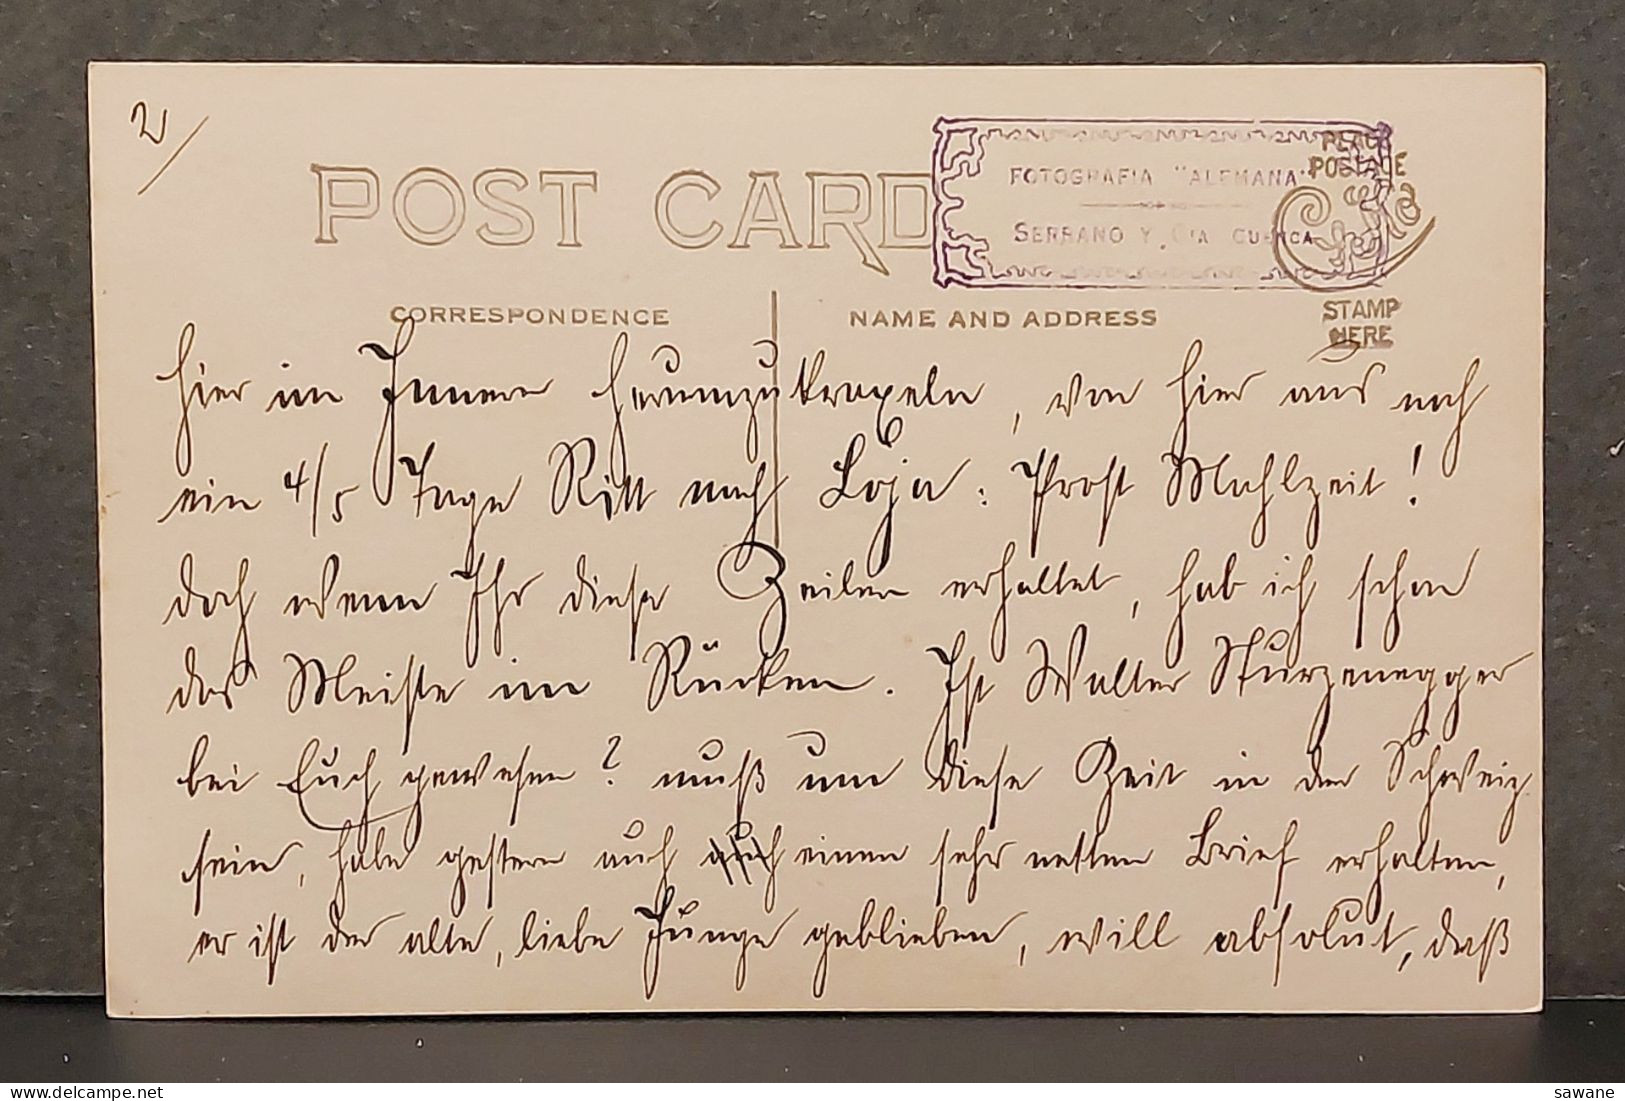 2/
POST CARD
FOTOGRAFIA "ALEMANA"
SERRANO Y Cia CUENCA
PLACE
POSTAGE
STAMP
HERE
CORRESPONDENCE
NAME AND ADDRESS
hier im Innern herumzukraxeln, von hier aus noch
ein 4/5 Tage Ritt nach Loja: Prost Mahlzeit!
doch wenn Ihr diese Zeilen erhaltet, hab ich schon
das Meiste im Rücken. Ist Walter Sturzenegger
bei Euch gewesen? muß um diese Zeit in der Schweiz
sein, habe gestern auch einen sehr netten Brief erhalten,
er ist der alte, liebe Junge geblieben, will absolut, daß
sawane